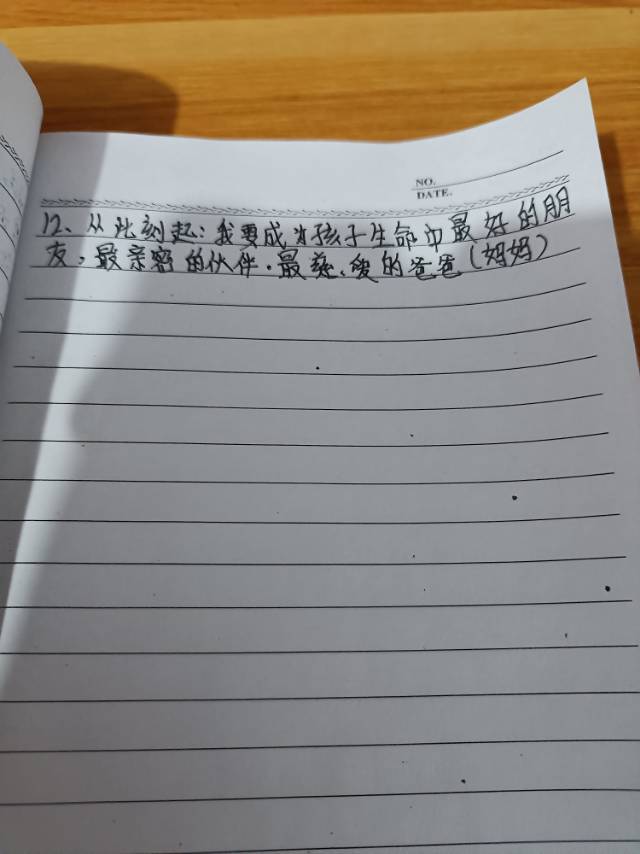 NO.
DATE.
12、从此刻起：我要成为孩子生命中最好的朋
友，最亲密的伙伴．最慈、爱的爸爸（妈妈）